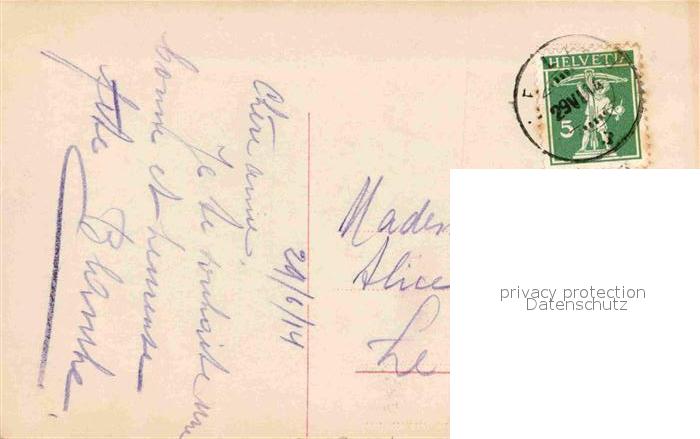 29/6/14
Chère amie.
Je te souhaite une
bonne et heureuse
fête Blanche.
Madem
Alice
Le
HELVETIA
5
29 VI 14
privacy protection
Datenschutz